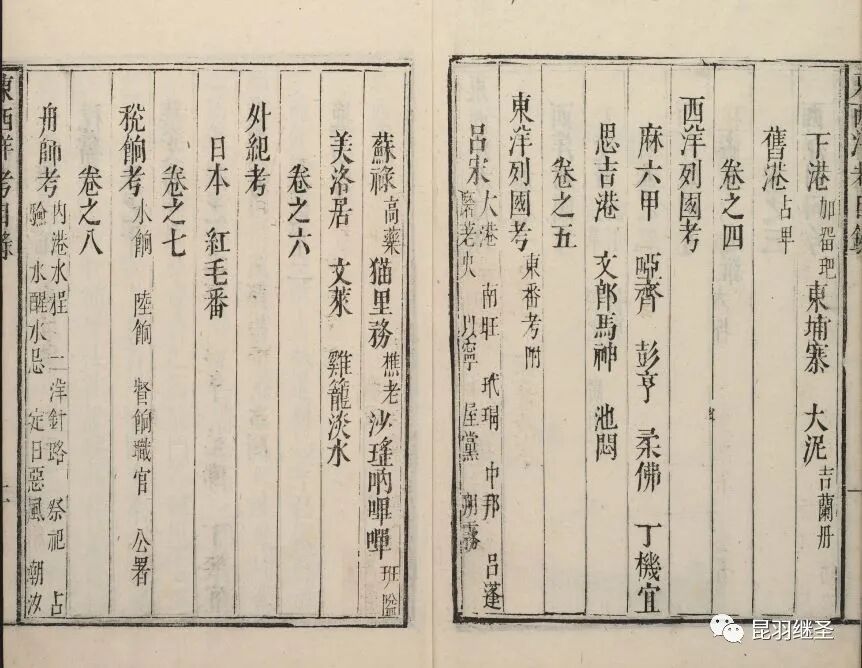 下港加留𠯢東埔寨 大泥吉蘭丹
舊港占卑
卷之四
西洋列國考
麻六甲 啞齊 彭亨 柔佛 丁機宜
思吉港 文郎馬神 池悶
卷之五
東洋列國考東番考附
呂宋大港 南旺 玳瑁 中邦 呂蓬
磨荖央 以寧 屋黨 朔霧
東西洋考目錄
蘇祿高藥 猫里務樵老 沙瑤吶嗶嘽班隘
美洛居 文萊 雞籠淡水
卷之六
外紀考
日本 紅毛番
卷之七
稅餉考水餉 陸餉 督餉職官 公署
卷之八
舟師考內港水程 二洋針路 祭祀 占
驗 水醒水忌 定日惡風 潮汐
東西洋考目錄
昆羽继圣